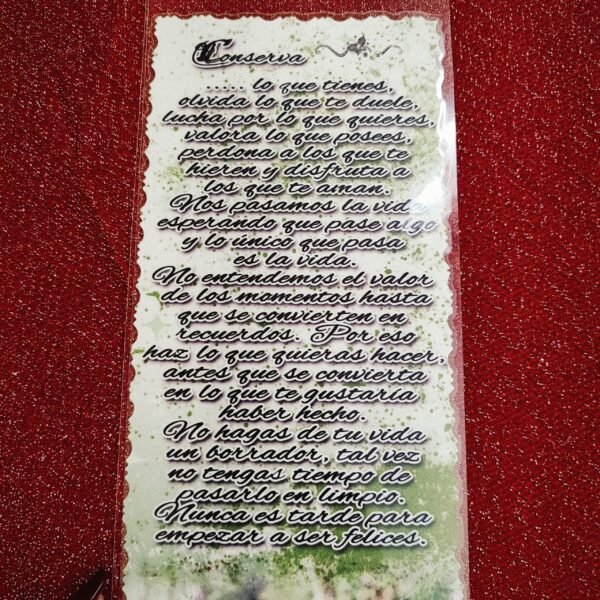 Conserva
..... lo que tienes,
olvida lo que te duele,
lucha por lo que quieres,
valora lo que posees,
perdona a los que te
hieren y disfruta a
los que te aman.
Nos pasamos la vida
esperando que pase algo
y lo único que pasa
es la vida.
No entendemos el valor
de los momentos hasta
que se convierten en
recuerdos. Por eso
haz lo que quieras hacer,
antes que se convierta
en lo que te gustaría
haber hecho.
No hagas de tu vida
un borrador, tal vez
no tengas tiempo de
pasarlo en limpio.
Nunca es tarde para
empezar a ser felices.